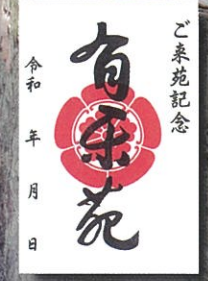 ご来苑記念
有楽苑
令和　年　月　日